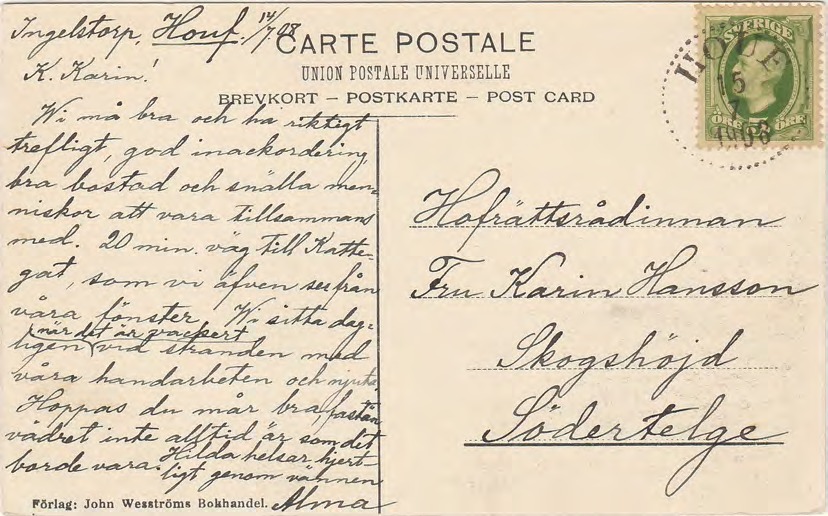 Ingelstorp, Houf. 14/7.08
CARTE POSTALE
UNION POSTALE UNIVERSELLE
BREVKORT – POSTKARTE – POST CARD
K. Karin!
Wi må bra och ha riktigt
trefligt, god inackordering,
bra bostad och snälla men-
niskor att vara tillsammans
med. 20 min. väg till Katte-
gat, som vi äfven se från
våra fönster. Wi sitta dag-
ligen när det är vackert vid stranden med
våra handarbeten och njuta.
Hoppas du mår bra, fastän
vädret inte alltid är som det
borde vara. Hilda helsar hjert-
ligt genom vännen
Alma
Förlag: John Wesströms Bokhandel.
SVERIGE
5
ÖRE ÖRE
HOUF
15
7
1908
Hofrättsrådinnan
Fru Karin Hansson
Skogshöjd
Södertelge